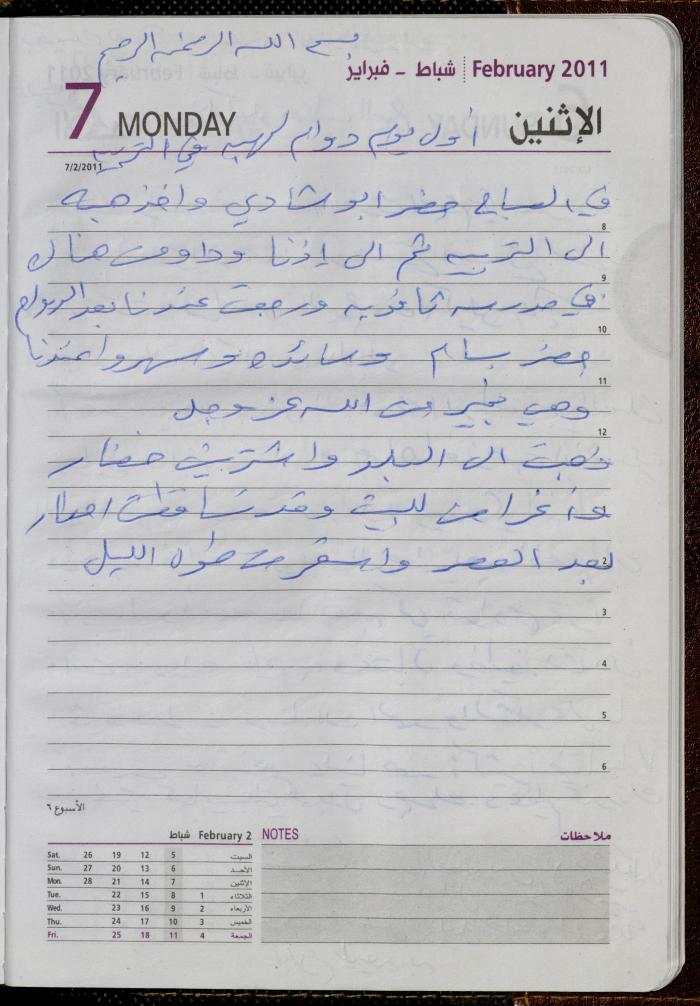 بسم الله الرحمن الرحيم
شباط - فبراير February 2011
7 MONDAY الإثنين
أول يوم دوام لهبه في التربيه
7/2/2011
في الصباح حضر ابو شادي واخذ هبه
8
الى التربيه ثم الى إذنا وداومت هناك
9
في مدرسه ثانويه ورجعت عندنا بعد الدوام
10
حضر بسام وسائده وسهروا عندنا
11
وهي بخير من الله عز وجل
12
ذهبت الى البلد واشتريت خضار
واغراض للبيت وقد تساقطت امطار
بعد العصر واستمرت طوال الليل
2
3
4
5
6
الأسبوع ٦
شباط February 2
Sat. 26 19 12 5 السبت
Sun. 27 20 13 6 الأحد
Mon. 28 21 14 7 الإثنين
Tue. 22 15 8 1 الثلاثاء
Wed. 23 16 9 2 الأربعاء
Thu. 24 17 10 3 الخميس
Fri. 25 18 11 4 الجمعة
NOTES ملاحظات